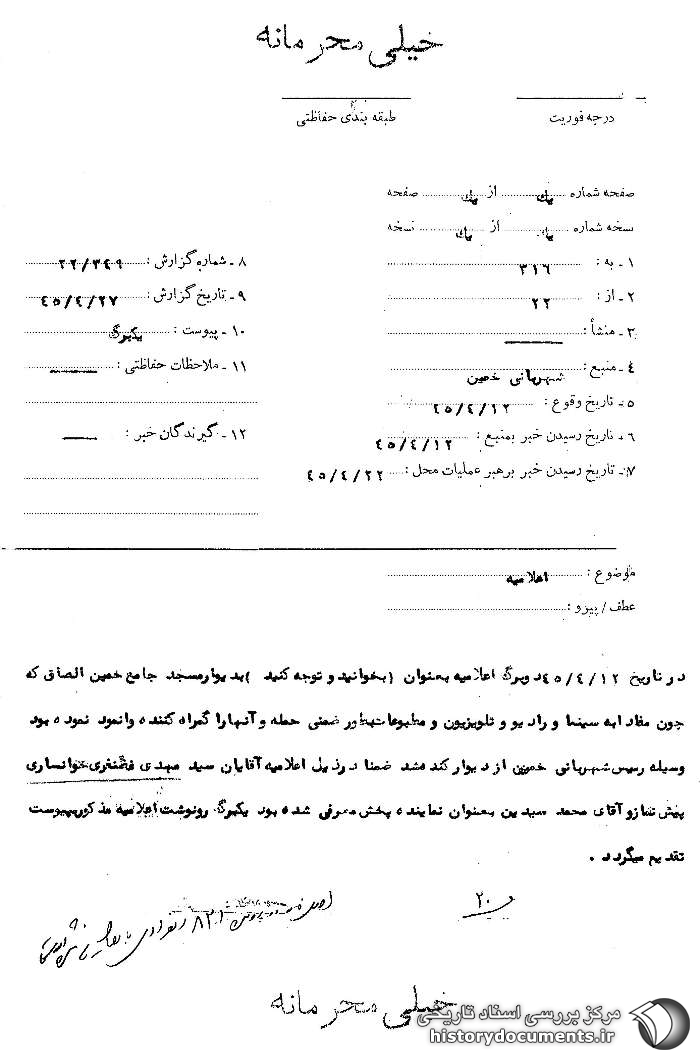 خیلی محرمانه
درجه فوریت
طبقه بندی حفاظتی
صفحه شماره یک از یک صفحه
نسخه شماره یک از یک نسخه
۱ - به : ۳۱۶
۲ - از : ۲۲
۳ - منشأ :
۴ - منبع : شهربانی خمین
۵ - تاریخ وقوع : ۴۵/۴/۱۲
۶ - تاریخ رسیدن خبر بمنبع : ۴۵/۴/۱۲
۷ - تاریخ رسیدن خبر برهبر عملیات محل : ۴۵/۴/۲۲
۸ - شماره گزارش : ۲۲/۳۴۹
۹ - تاریخ گزارش : ۴۵/۴/۲۷
۱۰ - پیوست : یکبرگ
۱۱ - ملاحظات حفاظتی :
۱۲ - گیرندگان خبر :
موضوع : اعلامیه
عطف / پیرو :
در تاریخ ۴۵/۴/۱۲ دوبرگ اعلامیه بعنوان (بخوانید و توجه کنید ) بدیوار مسجد جامع خمین الصاق که
چون مفاد ابه سینما و رادیو و تلویزیون و مطبوعات بطور ضمنی حمله و آنها را گمراه کننده وانمود نموده بود
وسیله رئیس شهربانی خمین از دیوار کنده شد ضمنا در ذیل اعلامیه آقایان سید مهدی غضنفری خوانساری
پیش نماز و آقای محمد سیدین بعنوان نماینده پخش معرفی شده بود یکبرگ رونوشت اعلامیه مذکور بپیوست
تقدیم میگردد .
۲۰
خیلی محرمانه
مرکز بررسی اسناد تاریخی
historydocuments.ir